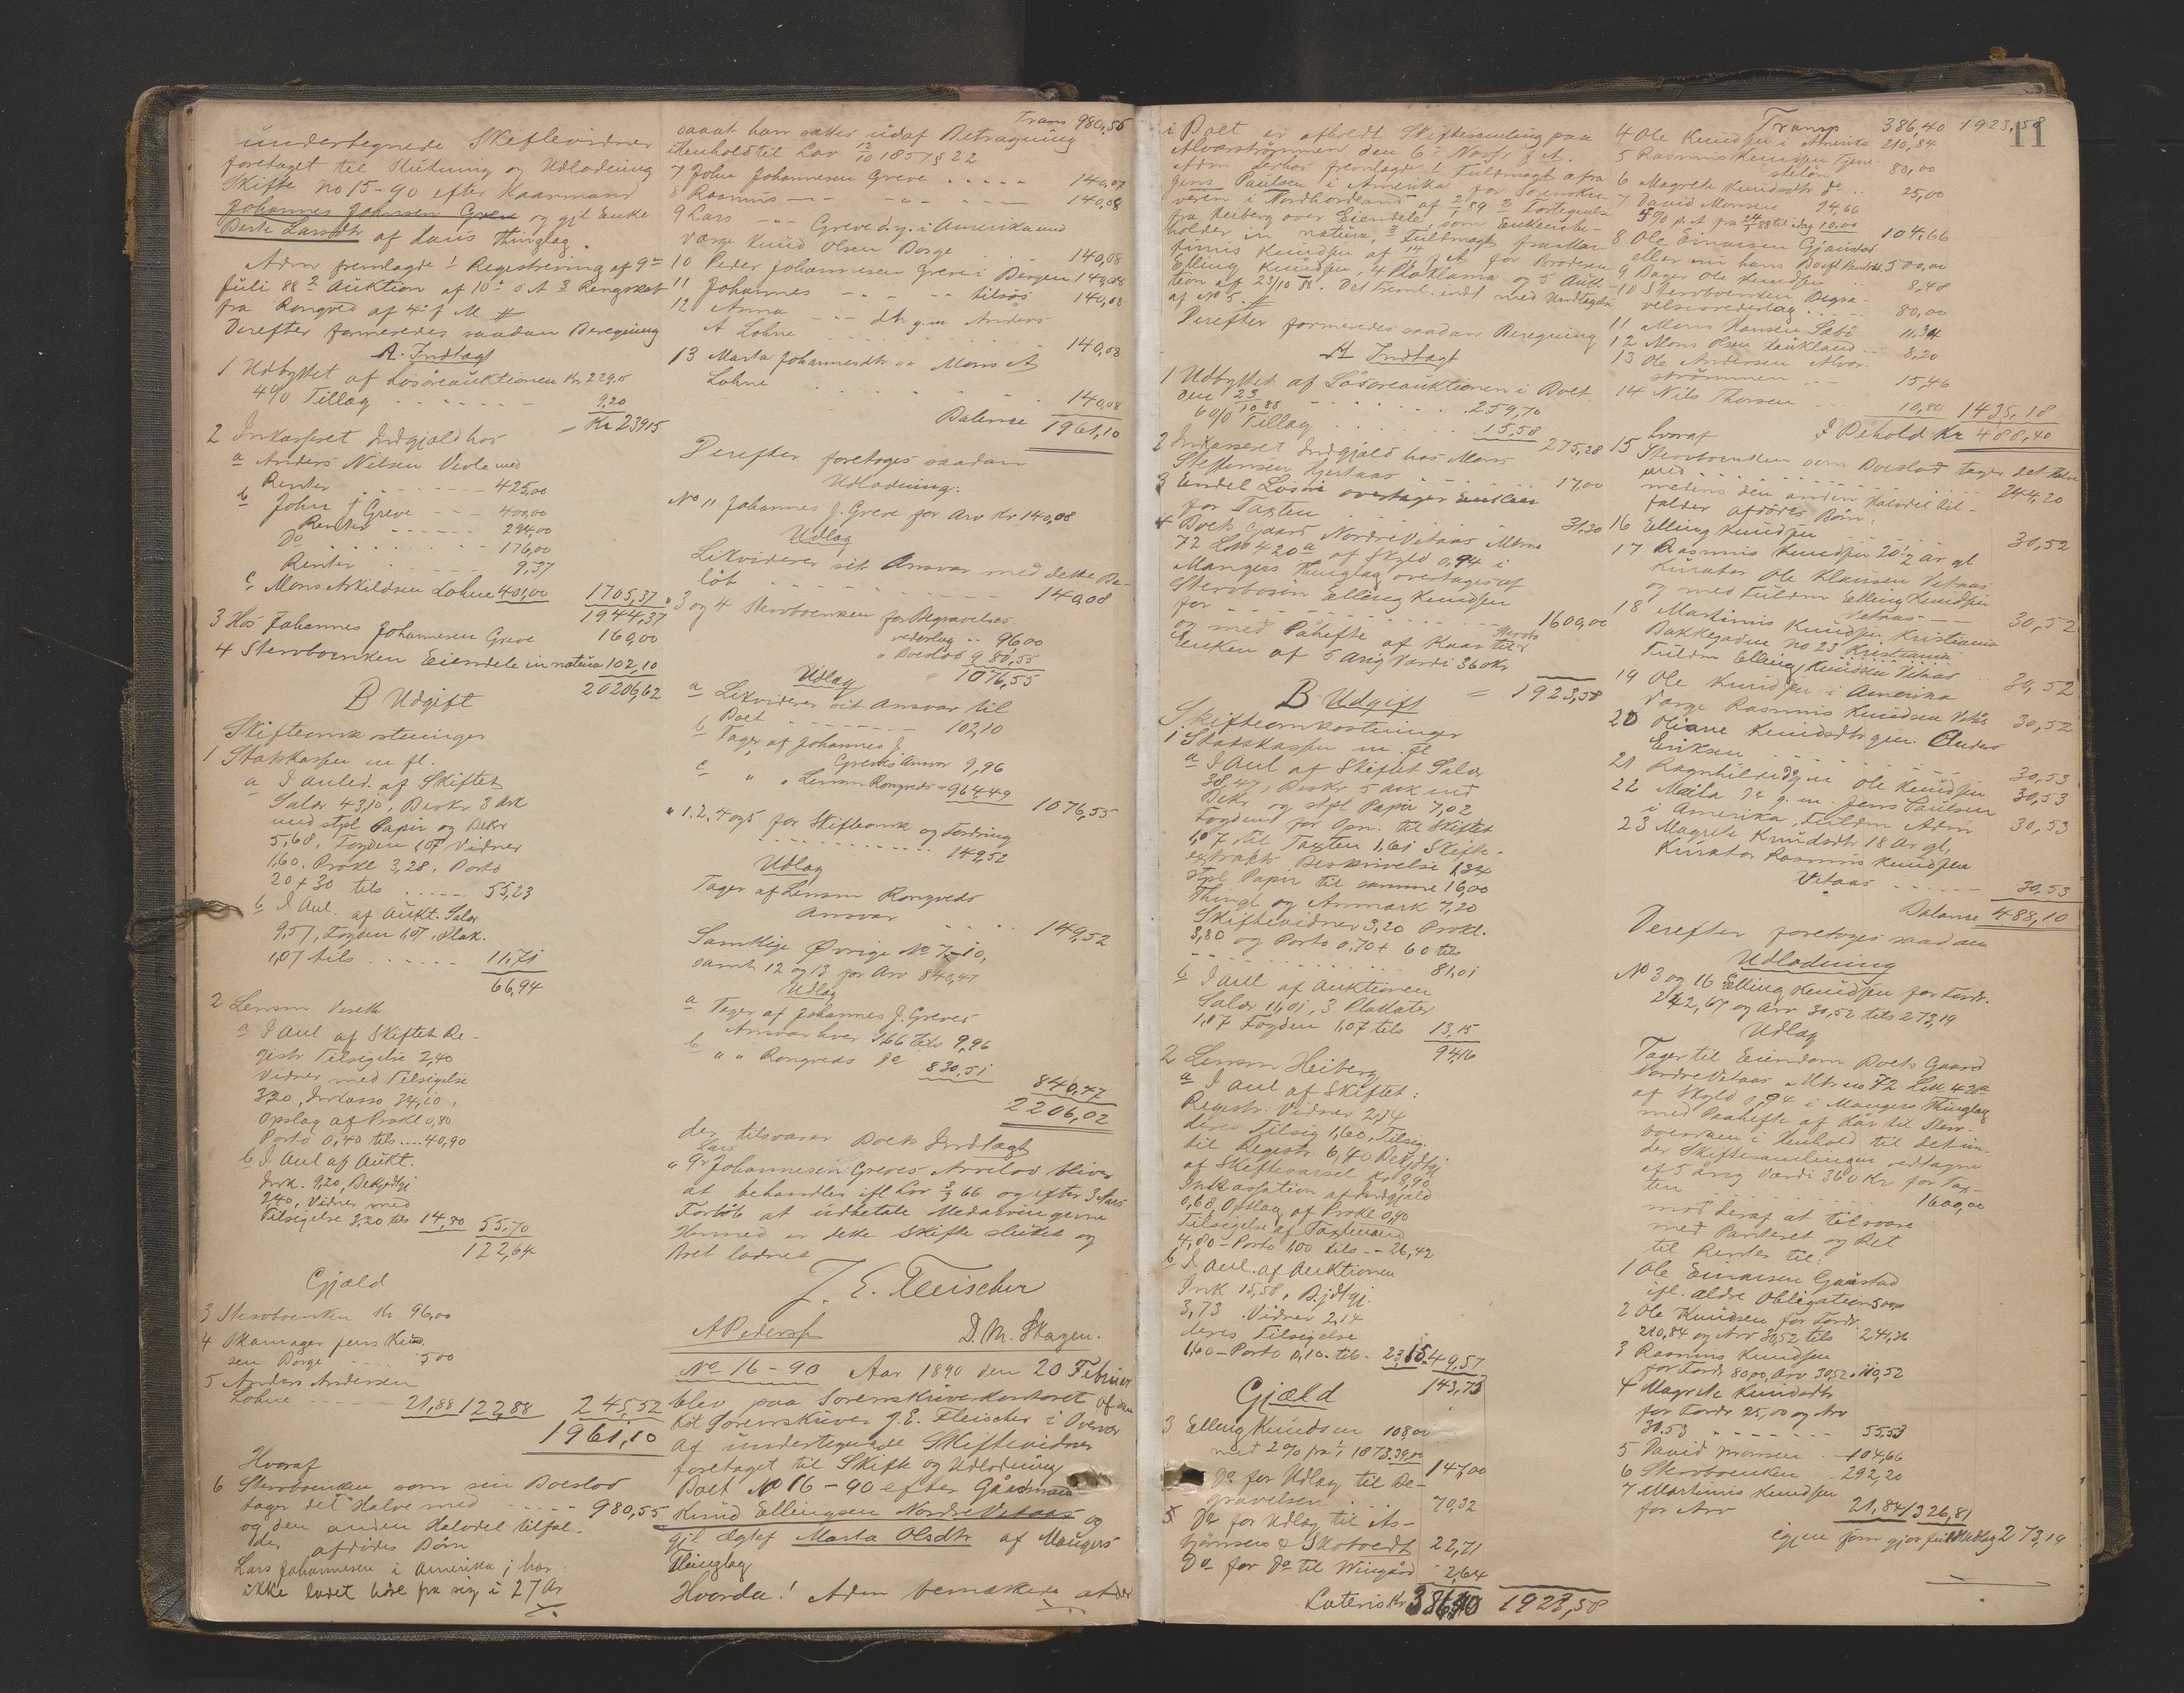 undertegnede Skiftevidner
foretaget til Slutning og Udlodning
Skifte No 15-90 efter Kaarmand
Johannes Johnsen Greve og gjl Enke
Berte Larsdtr af Haus Thinglag.
Adm fremlagde 1 Registrering af 9de
Juli 88 2 Auktion af 10de s A 3 Regnskab
fra Rongved af 4de f M #
Derefter formeredes saadan Beregning
A. Indtægt
1 Udbyttet af Løsøreauktionen Kr 229,95
4% Tillæg 9,20
= Kr 239,15
2 Inkasseret Indgjæld hos
a Anders Nilsen Veole med
Renter 425,00
b John J Greve 400,00
Renter 294,00
Do 176,00
Renter 9,37
c, Mons Arkildsen Lohne 401,00 1705,37
1944,37
3 Hos Johannes Johannesen Greve 160,00
4 Stervboenken Eiendele in natura 102,10
2206,62
B Udgift
Skifteomkostninger
1 Statskassen m fl.
a I Anled. af Skiftet
Salær 43,10, Beskr 3 Ark
med stpl Papir og Bekr
5,68, Fogden 1,07 Vidner
1,60. Prokl 3,28, Porto
20 + 30 tils 55,23
b I Anl. af Aukt. Salær
9,57, Fogden 1,07, Plak.
1,07 tils 11,71
66,94
2 Lensm Vereth
a I Anl af Skiftet Re-
gistr Tilsigelse 2,40
Vidner med Tilsigelse
3,20, Inkasso 34,10,
Opslag af Prokl 0,80
Porto 0,40 tils 40,90
b I Anl af Aukt.
Ink. 9,20, Bekjdtgj
2,40, Vidner med
Tilsigelse 3,20 tils 14,80 55,70
122,64
Gjæld
3 Stervboenken Kr 96,00
4 Skomager Jens Knud-
sen Borge 5,00
5 Anders Andersen
Lohne 21,88 122,88 245,52
1961,10
Hvoraf
6 Stervboenken som sin Boeslod
tager det Halve med 980,55
og den anden Halvdel tilfal-
der afdødes Børn
Lars Johannesen i Amerika, har
ikke ladet høre fra sig i 27 Ar
Trans 980,55
saaat han sættes udaf Betragtning
i Henhold til Lov 12/10 1857 § 22
7 John Johannesen Greve 140,07
8 Rasmus 140,08
9 Lars Greve d.y. i Amerika med
Værge Knud Olsen Borge 140,08
10 Peder Johannesen Greve i Bergen 140,08
11 Johannes tilsøs 140,08
12 Anna dtr g.m Anders
A Lohne 140,08
13 Marta Johannesdtr Mons A
Lohne 140,08
Balance 1961,10
Derefter foretoges saadan
Udlodning:
No 11 Johannes J. Greve for Arv Kr 140,08
Udlæg
Likviderer sit Ansvar med dette Be-
løb 140,08
" 3 og 4 Stervboenken for Begravelses-
vederlag 96,00
" Boeslod 980,55
= 1076,55
Udlæg
a Likviderer sit Ansvar til
Boet 102,10
b Tager af Johannes J.
Greves Ansvar 9,96
c " " Lensm Rongveds " 964,49 1076,55
" 1. 2. 4 og 5 for Skifteomk og Fordring
149,52
Udlæg
Tager af Lensm Rongveds
Ansvar 149,52
Samtlige Øvrige No 7-10,
samt 12 og 13 for Arv 840,47
Udlæg
a Tager af Johannes J. Greves
Ansvar hver 1,66 tils 9,96
b " " Rongveds Do 830,51
840,47
2206,02
der tilsvarer Boets Indtægt
Lars
" 9 Johannesen Greves Arvelod bliver
at behandles ifl Lov 3/3 66 og efter 3 Aars
Forløb at udbetale Medarvingerne
Hermed er dette Skifte sluttet og
Boet lodnet
J. E. Fleischer
A Pedersen D. M. Skagen.
No 16-90 Aar 1890 den 20 Februar
blev paa Sorenskriverkontoret af den
kst Sorenskriver J. E. Fleischer i Overvær
af undertegnede Skiftevidner
foretaget til Skifte og Udlodning
Boet No 16-90 efter Gaardmand
Knud Ellingsen Nordre Vetaas og
gjl ægtef Marta Olsdtr af Mangers
Thinglag
Hvorda! Adm bemærkede at der
11
i Boet er afholdt Skiftesamling paa
Alværstrømmen den 6te Novbr f. A.
Adm derhos fremlagde 1 Fuldmagt afra
Jens Paulsen i Amerika for Sorenskri-
veren i Nordhordland af 2/1 89 2 Fortegnelse
fra Heiberg over Eiendele, som Enken be-
holder in natura, 3 Fuldmagt fra Mar-
tinus Knudsen af 14 f A for Broderen
Elling Knudsen, 4 Proklama og 5 Auk-
tion af 23/10 88. Det Freml. indt. med Undtagelse
af No 5. #
Derefter formeredes saadan Beregning
A Indtægt
1 Udbyttet af Løsøreauktionen i Boet
den 23/10 88 259,70
6% Tillæg 15,58 275,28
2 Inkasseret Indgjæld hos Mons
Steffensen Hjertaas 17,00
3 Endel Løsøre overtager Enken
for Taxten 31,30
4 Boets Gaard Nordre Vetaas Mtrno
72 LNo 420a af Skyld 0,94 i
Mangers Thinglag overtages af
Stervbosøn Elling Knudsen
for 1600,00
og med Påhefte af Kaar til Stervbo-
Enken af 5 Arig Værdi 360 Kr
= 1923,58
B Udgift
Skifteomkostninger
1 Statskassen m. fl
a I Anl af Skiftet Salær
38,47, Beskr 5 Ark med
Bekr og stpl Papir 7,02
Fogden for Opn. til Skiftet
1,07, til Taxten 1,61 Skifte-
extrakts Beskrivelse 1,34
stpl Papir til samme 16,00
Thingl og Anmærk 7,20
Skiftevidner 3,20 Prokl.
3,80 og Porto 0,70 + 60 tils
81,01
b I Anl af Auktionen
Salær 11,01, 3 Plakater
1,07 Fogden 1,07 tils 13,15
94,16
2 Lensm Heiberg
a I Anl af Skiftet:
Registr. Vidner 2,14
deres Tilsig 1,60, Tilsig.
til Registr 6,40 Bekjdtgj
af Skiftevarsel Kr 8,90
Inkassation af Indgjæld
0,68, Opslag af Prokl 0,90
Tilsigelse af Taxtmænd
4,80 - Porto 1,00 tils - 26,42
b I Anl. af Auktionen
Ink 15,58, B.jdtgj.
3,73 Vidner 2,14
deres Tilsigelse
1,60 - Porto 0,10 til - 23,15 49,57
143,73
Gjæld
3 Elling Knudsen 108,00
med 2% fra 1/1 1873 39,00 147,00
4 Do for Udlæg til Be-
gravelsen 70,32
5 Do for Udlæg til As-
bjørnsen & Skotvedt 22,71
Do for Do til Wingård 2,64
Lateris Kr 386,40 1923,58
Transp 386,40 1923,58
4 Ole Knudsen i Amerika 210,84
5 Rasmus Knudsen Tjene-
steløn 80,00
6 Magrete Knudsdtr Do 25,00
7 David Monsen 94,66
5% p. A fra 24/1 88 til idag 10,00 104,66
8 Ole Einarsen Gjaustad
eller nu hans Bo ifl Panteobl 500,00
9 Dager Ole Knudsen 8,48
10 Stervboenken Begra-
velsesvederlag 80,00
11 Mons Hansen Sæbø 11,34
12 Mons Olsen Haukland 8,20
13 Ole Andersen Alver-
strømmen 15,46
14 Nils Thorsen 10,80 1435,18
I Behold Kr 488,40
hvoraf
15 Stervboenken som Boeslod tager det Halve
med 244,20
medens den anden Halvdel til-
falder afdødes Børn:
16 Elling Knudsen 30,52
17 Rasmus Knudsen 20 1/2 år gl
Kurator Ole Klausen Vetaas
og med Fuldm Elling Knudsen
Vetaas 30,52
18 Martinus Knudsen, Kristiania
Bakkegaden No 23 Kristiania
Fuldm Elling Knudsen Vetaas 30,52
19 Ole Knudsen i Amerika
Værge Rasmus Knudsen Vetås 30,52
20 Oliane Knudsdtr gm. Anders
Eriksen 30,53
21 Ragnhild dtr gm Ole Knudsen 30,53
22 Maila Do g. m. Jens Paulsen
i Amerika, Fuldm Adm 30,53
23 Magrete Knudsdtr 18 Ar gl,
Kurator Rasmus Knudsen
Vetaas 30,53
Balance 488,10
Derefter foretoges saadan
Udlodning
No 3 og 16 Elling Knudsen for Fordr.
242,67 og Arv 30,52 tils 273,19
Udlæg
Tager til Eiendom Boets Gaard
Nordre Vetaas Mtr no 72 LNo 420a
af Skyld 0,94 i Mangers Thinglag
med Paahefte af Kår til Sterv-
boenken i Henhold til det un-
der Skiftesamlingen vedtagne
af 5 årig Værdi 360 Kr for Tax-
ten 1600,00
mod deraf at tilsvare
med Panteret og Ret
til Renter til:
1 Ole Einarsen Gjaustad
ifl. ældre Obligation 500,00
2 Ole Knudsen for Fordr.
210,84 og Arv 30,52 tils 241,36
3 Rasmus Knudsen
for Fordr 80,00, Arv 30,52 " 110,52
4 Magrete Knudsdtr
for Fordr 25,00 og Arv
30.53 55,53
5 David Monsen 104,66
6 Stervboenken 292,20
7 Martinus Knudsen
for Arv 21,84 1326,81
igjen som gjør fuldt Udlæg 273,19